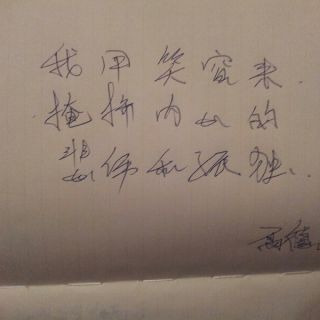 我用笑容来.
掩掩内心的
悲伤和孤独.